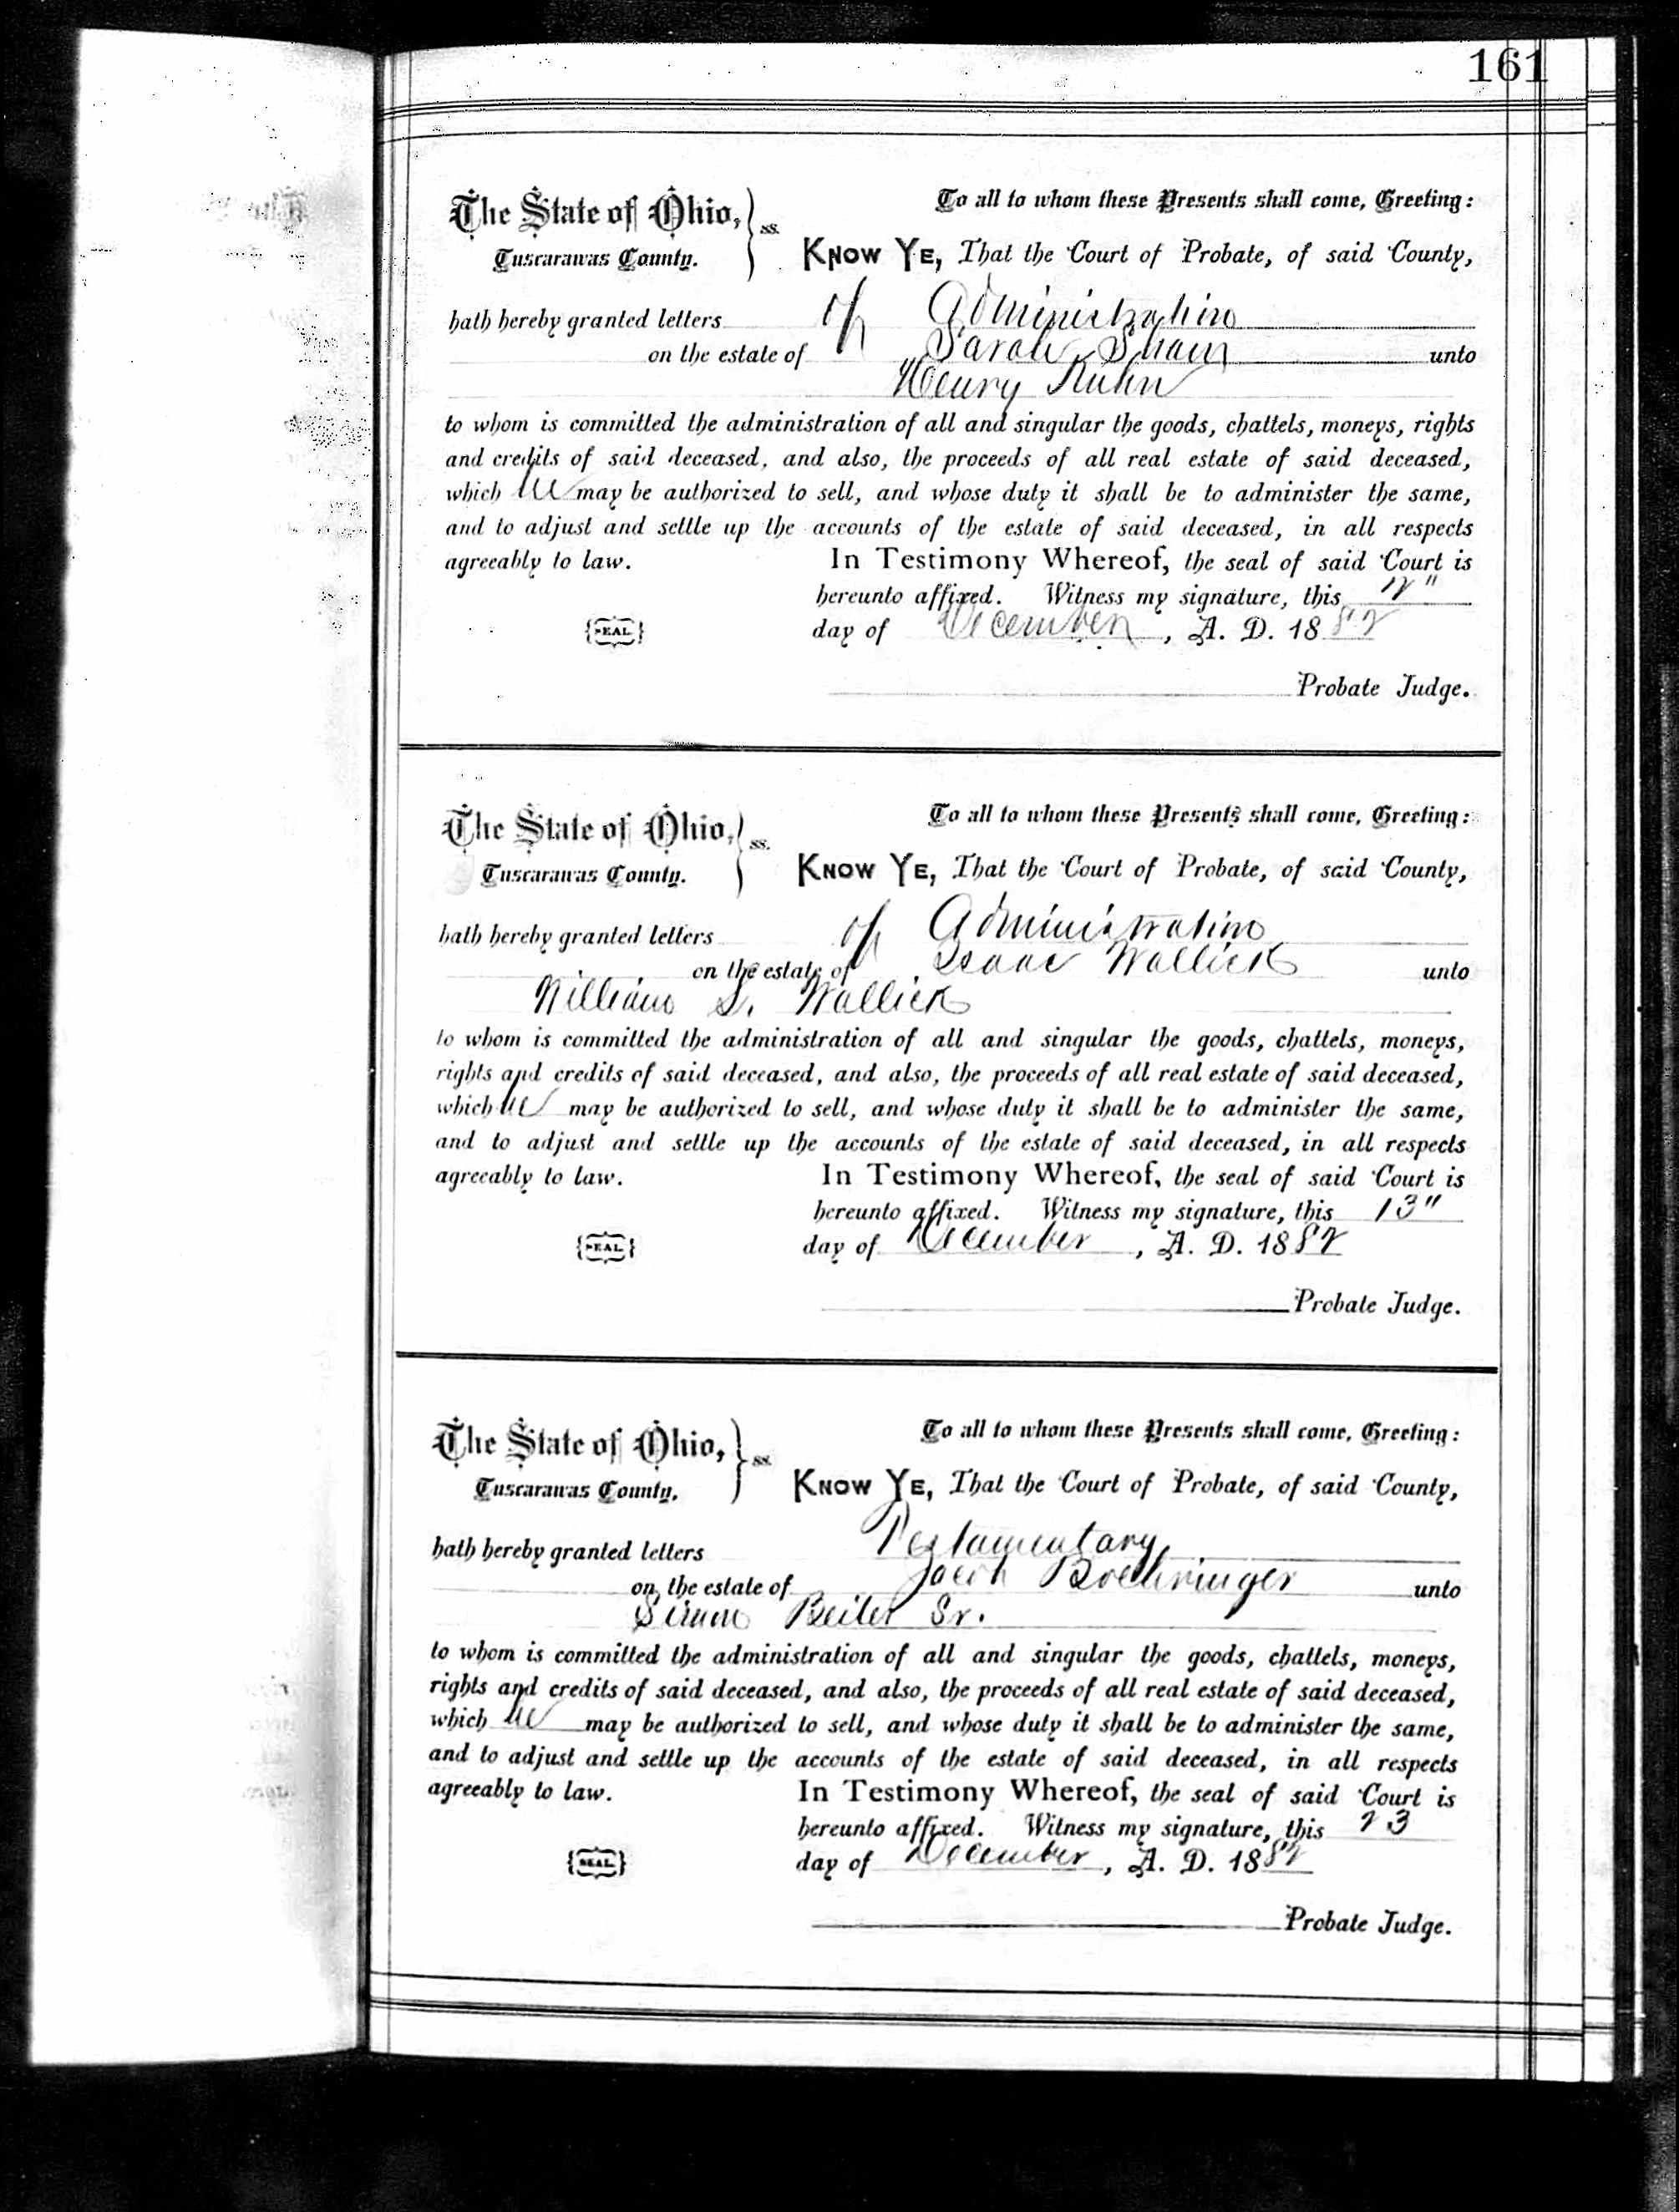 161
The State of Ohio, } ss.
Tuscarawas County.
To all to whom these Presents shall come, Greeting:
KNOW YE, That the Court of Probate, of said County,
hath hereby granted letters of Administration
on the estate of Sarah Swain unto
Henry Kuhn
to whom is committed the administration of all and singular the goods, chattels, moneys, rights
and credits of said deceased, and also, the proceeds of all real estate of said deceased,
which he may be authorized to sell, and whose duty it shall be to administer the same,
and to adjust and settle up the accounts of the estate of said deceased, in all respects
agreeably to law. In Testimony Whereof, the seal of said Court is
hereunto affixed. Witness my signature, this 12"
{SEAL} day of December, A. D. 1882
Probate Judge.
The State of Ohio, } ss.
Tuscarawas County.
To all to whom these Presents shall come, Greeting:
KNOW YE, That the Court of Probate, of said County,
hath hereby granted letters of Administration
on the estate of Isaac Wallick unto
William S. Wallick
to whom is committed the administration of all and singular the goods, chattels, moneys,
rights and credits of said deceased, and also, the proceeds of all real estate of said deceased,
which he may be authorized to sell, and whose duty it shall be to administer the same,
and to adjust and settle up the accounts of the estate of said deceased, in all respects
agreeably to law. In Testimony Whereof, the seal of said Court is
hereunto affixed. Witness my signature, this 13"
{SEAL} day of December, A. D. 1882
Probate Judge.
The State of Ohio, } ss.
Tuscarawas County.
To all to whom these Presents shall come, Greeting:
KNOW YE, That the Court of Probate, of said County,
hath hereby granted letters Testamentary
on the estate of Jacob Boehringer unto
Simon Beiter Sr.
to whom is committed the administration of all and singular the goods, chattels, moneys,
rights and credits of said deceased, and also, the proceeds of all real estate of said deceased,
which he may be authorized to sell, and whose duty it shall be to administer the same,
and to adjust and settle up the accounts of the estate of said deceased, in all respects
agreeably to law. In Testimony Whereof, the seal of said Court is
hereunto affixed. Witness my signature, this 23
{SEAL} day of December, A. D. 1882
Probate Judge.